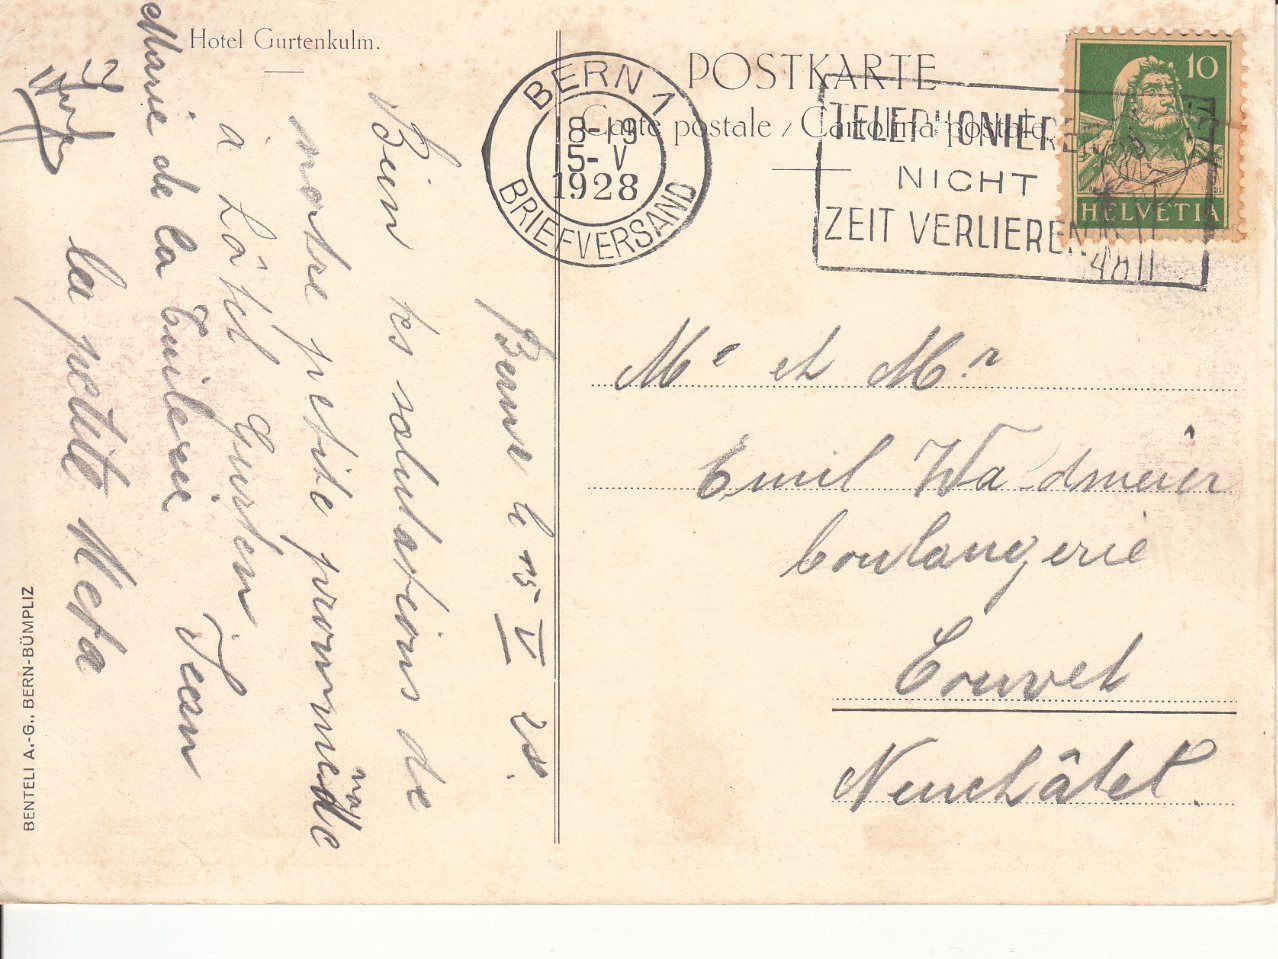 Hotel Gurtenkulm.
POSTKARTE
Carte postale / Cartolina postale
BERN 1
18-19
15-V
1928
BRIEFVERSAND
TELEPHONIEREN
NICHT
ZEIT VERLIEREN
10
HELVETIA
Berne le 15 V 28.
Bien tes salutations de
notre petite promméde
nat
à Lôtél Gurten.
Jean
Marie de la Tuilerie
la petite Meta
Me et Mr
Emil Waldmeier
boulangerie
Couvet
Neuchâtel.
BENTELI A.-G., BERN-BÜMPLIZ